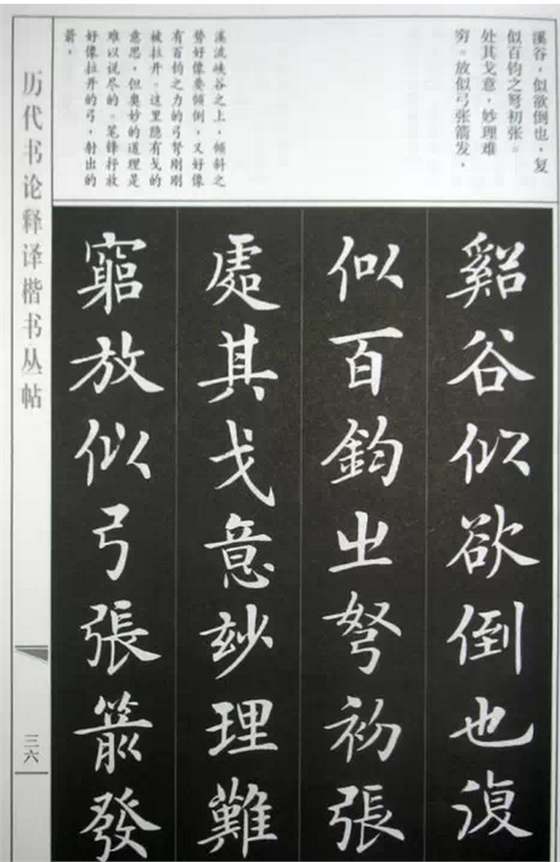 溪谷，似欲倒也，复
似百钧之弩初张。
处其戈意，妙理难
穷。放似弓张箭发，
溪流峡谷之上，倾斜之
势好像要倾倒，又好像
有百钧之力的弓弩刚刚
被拉开。这里隐有戈的
意思，但奥妙的道理是
难以说尽的。笔锋抒放
好像拉开的弓，射出的
箭。
谿谷似欲倒也復
似百鈞之弩初張
處其戈意妙理難
窮放似弓張箭發
历代书论释译楷书丛帖
三六